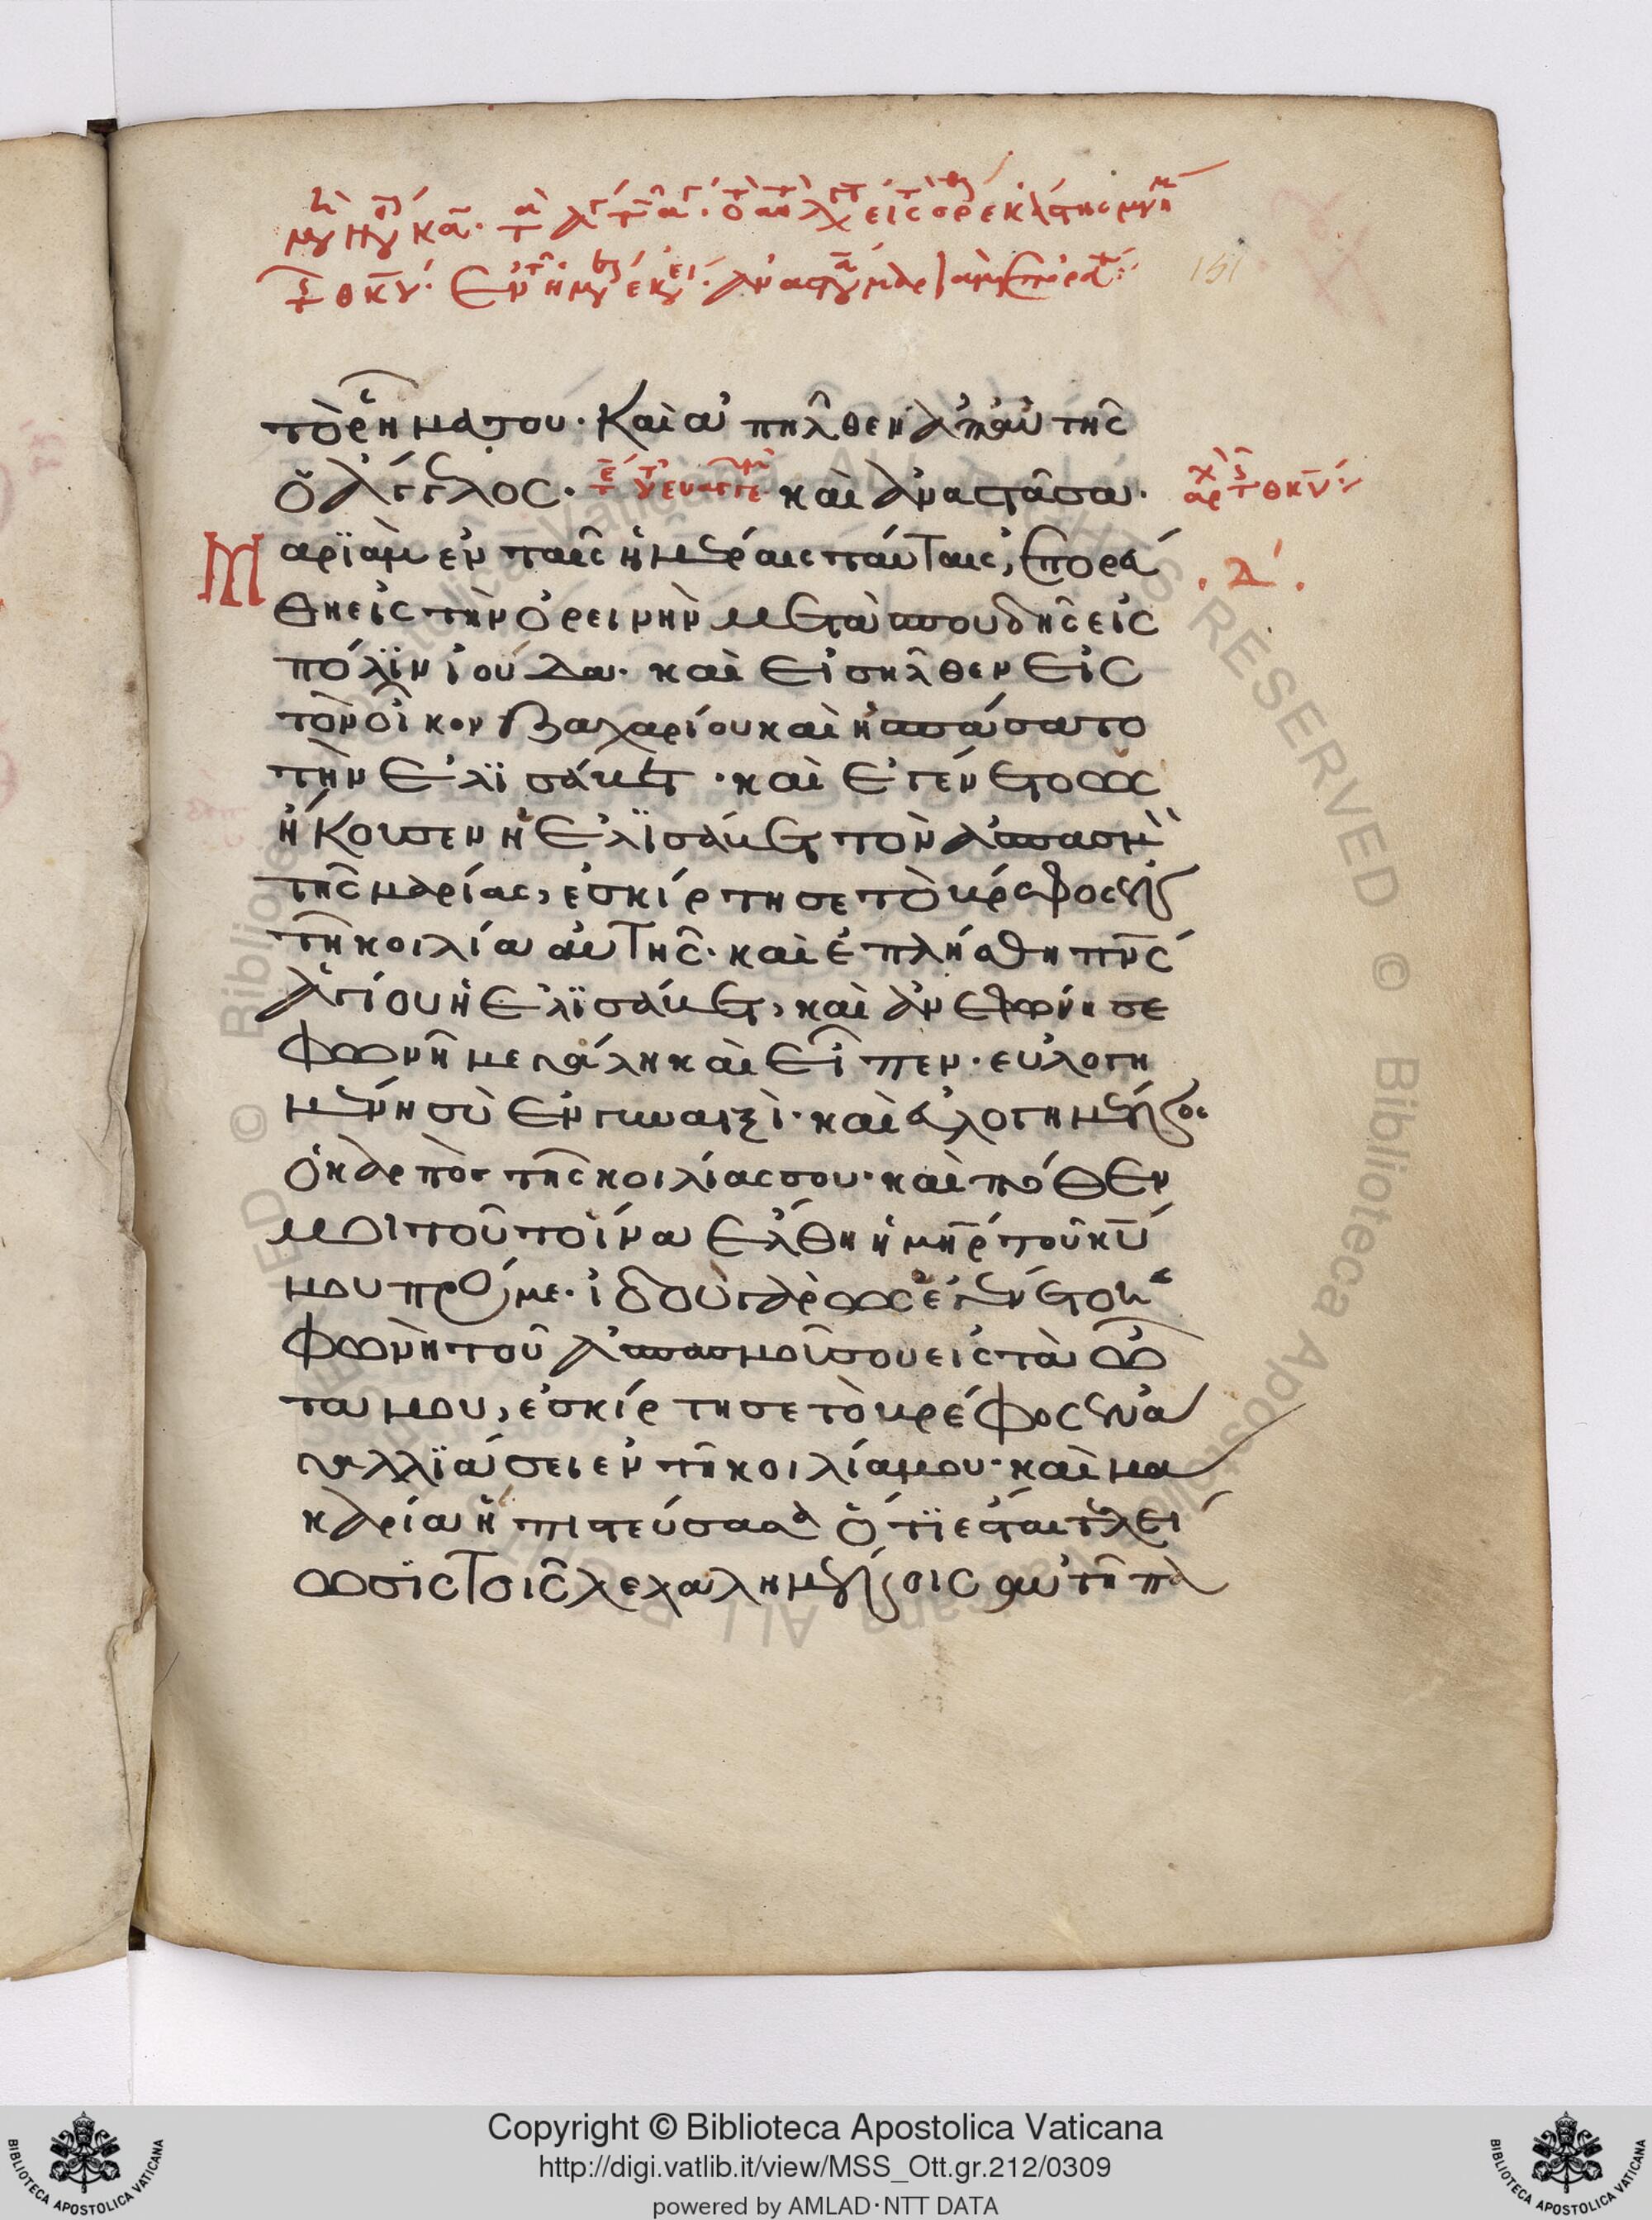 τὸ ῥῆμά σου· Καὶ ἀπῆλθεν ἀπ' αὐτῆς
ὁ ἄγγελος· καὶ ἀναστᾶσα·
Μαρϊὰμ ἐν ταῖς ἡμέραις ταύταις, ἐπορεύ
θη εἰς τὴν ὀρεινὴν μετὰ σπουδῆς εἰς
πόλϊν ἰούδα· καὶ εἰσῆλθεν εἰς
τὸν οἶκον Ζαχαρίου καὶ ἠσπάσατο
τὴν Ἐλϊσάβετ· καὶ ἐγένετο ὡς
ἤκουσεν ἡ Ἐλϊσάβετ τὸν ἀσπασμὸ
τῆς μαρίας, ἐσκίρτησε τὸ βρέφος ἐν
τῆ κοιλία αὐτῆς· καὶ ἐπλήσθη πνς
ἁγίου ἡ Ἐλϊσάβετ, καὶ ἀνεφώνησε
φωνῆ μεγάλη καὶ εἶπεν· εὐλογη
μένη σὺ ἐν γυναιξὶ· καὶ εὐλογημένος
ὁ καρπὸς τῆς κοιλίας σου· καὶ πόθεν
μοι τοῦτο ἵνα ἔλθη ἡ μηρ τοῦ κυ
μου πρός με· ἰδοὺ γὰρ ὡς ἐγένετο ἡ
φωνὴ τοῦ ἀσπασμοῦ σου εἰς τὰ ὦ
τα μου, ἐσκίρτησε τὸ βρέφος ἐν ἀ
γαλλϊάσει ἐν τῆ κοιλία μου· καὶ μα
καρία ἡ πιστεύσασα ὅτϊ ἔσται τελεί
ωσϊς τοῖς λελαλημένοις αὐτῆ πα
.Δ.
151
Copyright © Biblioteca Apostolica Vaticana
http://digi.vatlib.it/view/MSS_Ott.gr.212/0309
powered by AMLAD·NTT DATA
BIBLIOTECA APOSTOLICA VATICANA
BIBLIOTECA APOSTOLICA VATICANA